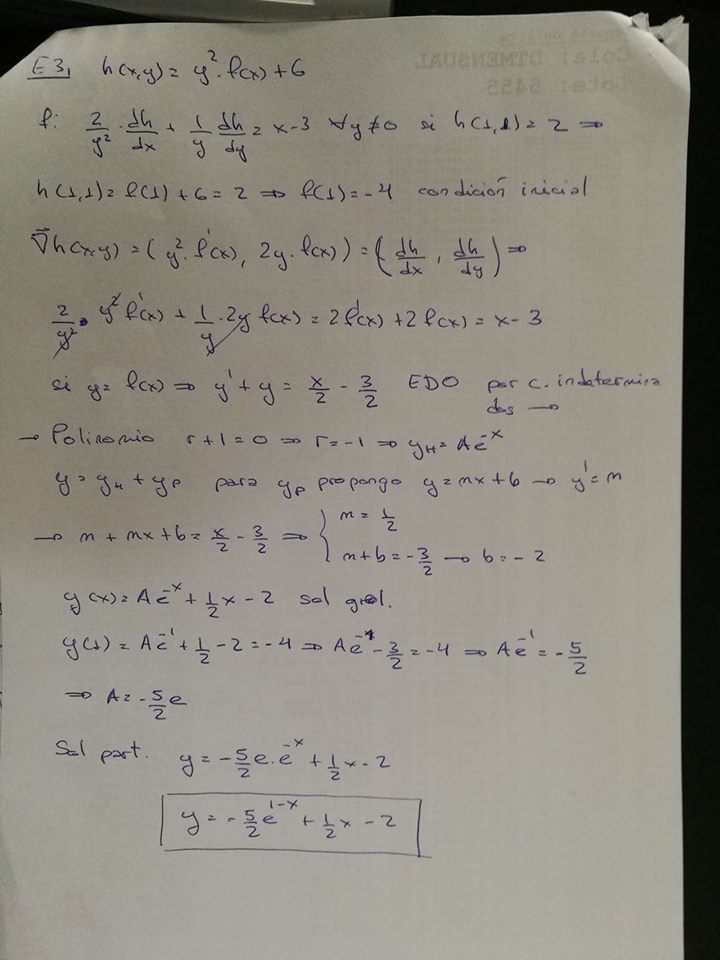 E3, h(x,y) = y². f(x) + 6
f: 2/y² . dh/dx + 1/y dh/dy = x-3 ∀y≠0 si h(1,1) = 2 ⇒
h(1,1) = f(1) + 6 = 2 ⇒ f(1) = -4 condición inicial
∇h(x,y) = (y². f'(x), 2y. f(x)) = (dh/dx, dh/dy) ⇒
2/y² . y² f'(x) + 1/y . 2y f(x) = 2f'(x) + 2f(x) = x - 3
si y = f(x) ⇒ y' + y = x/2 - 3/2 EDO por c. indetermina
dos →
→ Polinomio r + 1 = 0 ⇒ r = -1 ⇒ y_H = Ae^-x
y = y_H + y_P para y_P propongo y = mx + b → y' = m
→ m + mx + b = x/2 - 3/2 ⇒ { m = 1/2
m + b = -3/2 → b = -2
y(x) = Ae^-x + 1/2 x - 2 sol gral.
y(1) = Ae^-1 + 1/2 - 2 = -4 ⇒ Ae^-1 - 3/2 = -4 ⇒ Ae^-1 = -5/2
⇒ A = -5/2 e
Sol part. y = -5/2 e. e^-x + 1/2 x - 2
y = -5/2 e^1-x + 1/2 x - 2